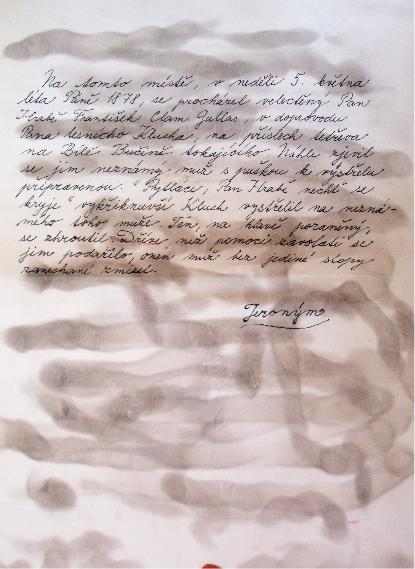 Na tomto místě, v neděli 5. května
léta Páně 1878, se procházel velectěný Pan
Hrabě František Clam Gallas, v doprovodu
Pana lesního Klucha, na příslech tetřeva
na Bílé Bučině tokajícího. Náhle zjevil
se jim neznámý muž s puškou k výstřelu
připravenou. "Pytláci, Pan Hrabě nechť se
kryje" vykřiknuvší Kluch vystřelil na nezná-
mého toho muže. Ten, na hlavě poraněný,
se zhroutil. Dříve, než pomoci zavolati se
jim podařilo, onen muž bez jediné stopy
zanechané zmizel.
Jeroným